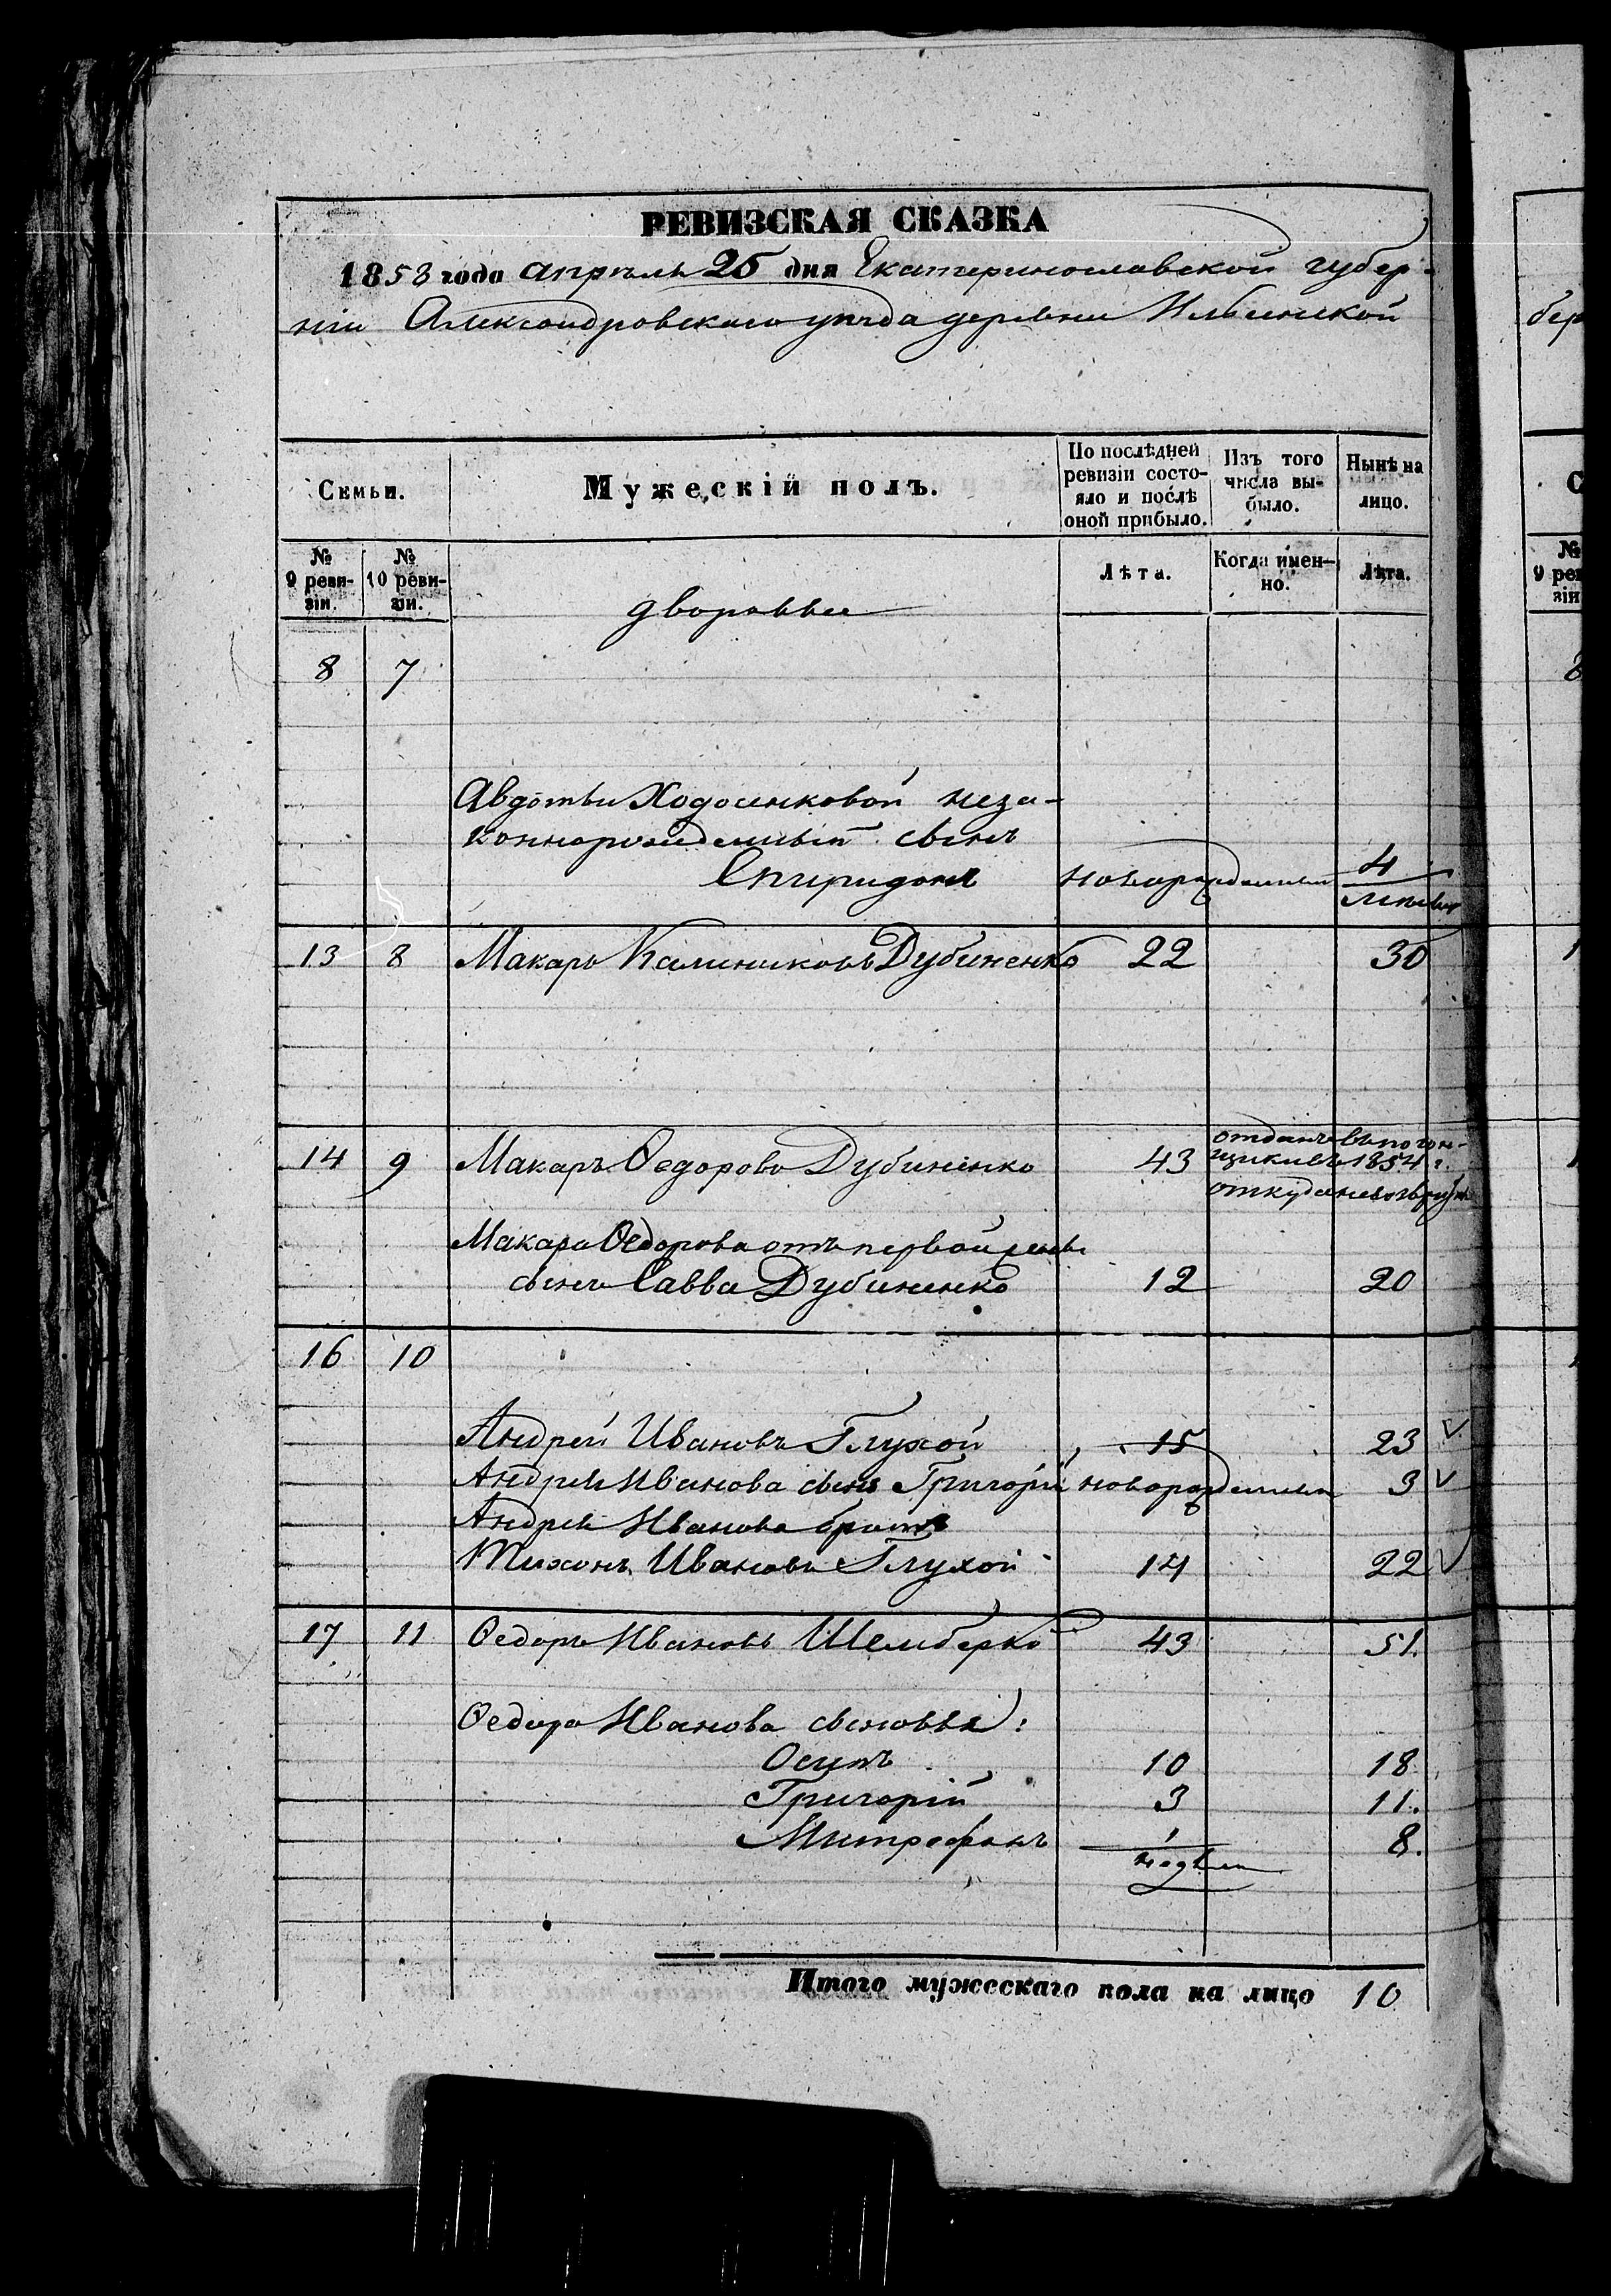 РЕВИЗСКАЯ СКАЗКА
1858 года апреля 25 дня Екатеринославской губер-
ніи Александровскаго уѣзда деревни Ильинской
Семьи.
Мужескій полъ.
По послѣдней ревизіи состо-яло и послѣ оной прибыло.
Изъ того числа вы-было.
Нынѣ на лицо.
№ 9 реви-зіи.
№ 10 реви-зіи.
дворовые
Лѣта.
Когда имен-но.
Лѣта.
8 7
Авдотьи Ходосенковой неза-
коннорожденный сынъ
Спиридонъ новорожденный 4
13 8 Макаръ Калениковъ Дубиненко 22 30
14 9 Макаръ Ѳедоровъ Дубиненко 43 отданъ въ погон-
щики въ 1854 г.
откуда не
Макара Ѳедорова отъ первой жены
сынъ Савва Дубиненко 12 20
16 10
Андрей Ивановъ Глухой 15 23
Андрея Иванова сынъ Григорій новорожденный 3
Андрея Иванова братъ
Тихонъ Ивановъ Глухой 14 22
17 11 Ѳедоръ Ивановъ Шемберко 43 51.
Ѳедора Иванова сыновья:
Осипъ 10 18
Григорій 3 11.
Митрофанъ 1 8.
недѣли
Итого мужескаго пола на лицо 10
бер
С
№
9 рев
зін